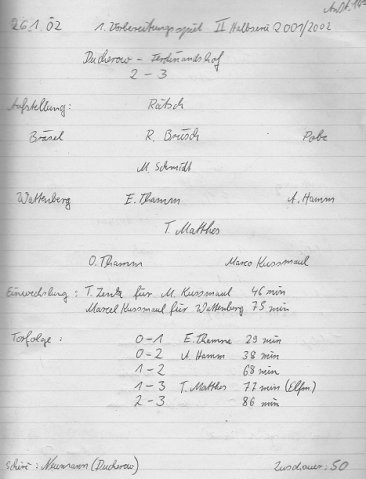 26.1.02 1. Vorbereitungsspiel II Halbserie 2001/2002
Ducherow - Ferdinandshof
2 - 3
Aufstellung: Rätsch
Bräsel R. Brüsch Pobe
M. Schmidt
Wattenberg E. Thamm A. Hamm
T. Matthes
O. Thamm Marco Kussmaul
Einwechslung: T. Zenk für M. Kussmaul 46 min
Marcel Kussmaul für Wattenberg 75 min
Torfolge: 0-1 E. Thamm 29 min
0-2 A. Hamm 38 min
1-2 68 min
1-3 T. Matthes 77 min (Elfm)
2-3 86 min
Schiri: Neumann (Ducherow) Zuschauer: 50